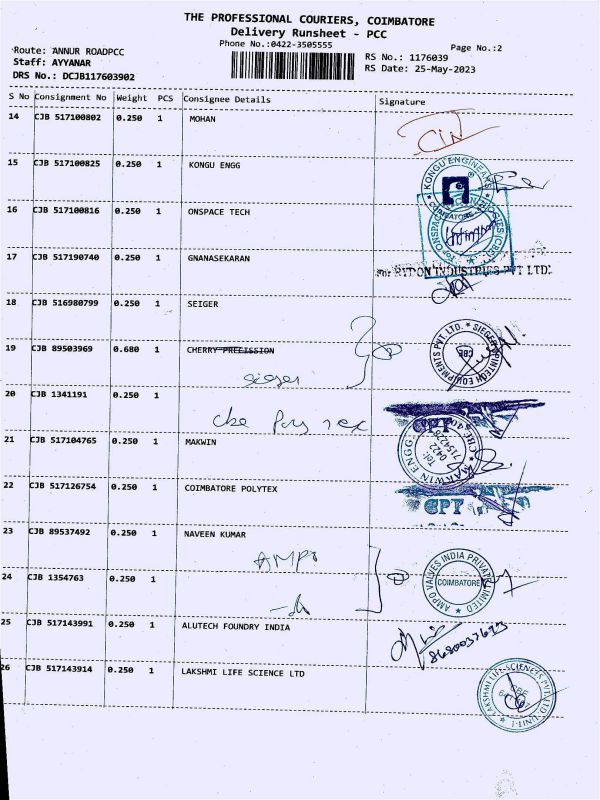 THE PROFESSIONAL COURIERS, COIMBATORE
Delivery Runsheet - PCC
Phone No.:0422-3505555
Page No.:2
Route: ANNUR ROADPCC
Staff: AYYANAR
DRS No.: DCJB117603902
RS No.: 1176039
RS Date: 25-May-2023
S No Consignment No Weight PCS Consignee Details Signature
14 CJB 517100802 0.250 1 MOHAN
15 CJB 517100825 0.250 1 KONGU ENGG
KONGU ENGINEERS
COIMBATORE
16 CJB 517100816 0.250 1 ONSPACE TECH
17 CJB 517190740 0.250 1 GNANASEKARAN
For RYDON INDUSTRIES PVT LTD.
18 CJB 516980799 0.250 1 SEIGER
19 CJB 89503969 0.680 1 CHERRY PRECISSION
sieger
SIEGER SPINTECH EQUIPMENTS PVT. LTD.
CBE
20 CJB 1341191 0.250 1
cbe Poly tex
CPT
21 CJB 517104765 0.250 1 MAKWIN
MAKWIN ENGG
Tel:
0422
22 CJB 517126754 0.250 1 COIMBATORE POLYTEX
CPT
23 CJB 89537492 0.250 1 NAVEEN KUMAR
AMPO
24 CJB 1354763 0.250 1
AMPO VALVES INDIA PRIVATE LIMITED
COIMBATORE
25 CJB 517143991 0.250 1 ALUTECH FOUNDRY INDIA
26 CJB 517143914 0.250 1 LAKSHMI LIFE SCIENCE LTD
LAKSHMI LIFE SCIENCES PVT LTD UNIT-1